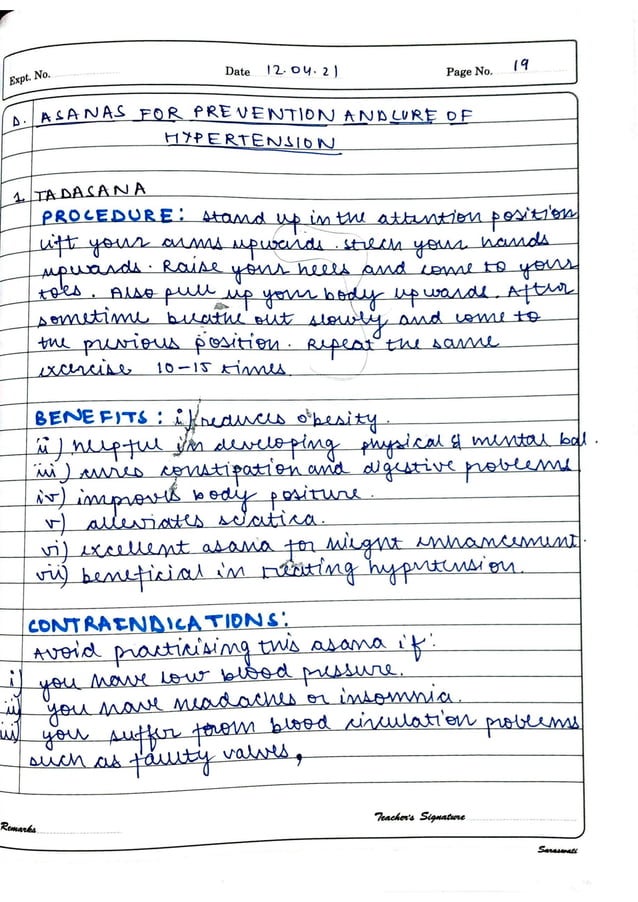 Expt. No. Date 12.04.21 Page No. 19
D. ASANAS FOR PREVENTION AND CURE OF
HYPERTENSION
1. TADASANA
PROCEDURE: stand up in the attention position
lift your arms upwards. strech your hands
upwards. Raise your heels and come to your
toes. Also pull up your body upwards. After
sometime breathe out slowly and come to
the previous position. Repeat the same
excercise 10-15 times.
BENEFITS: i) reduces obesity.
ii) helpful in developing physical & mental bal.
iii) cures constipation and digestive problems
iv) improves body positure.
v) alleviates sciatica.
vi) excellent asana for hieght enhancement.
vii) beneficial in treating hypertension.
CONTRAINDICATIONS:
Avoid practicising this asana if:
i) you have low blood pressure.
ii) you have headaches or insomnia.
iii) you suffer from blood circulation problems
such as faulty valves,
Teacher's Signature
Remarks
Saraswati